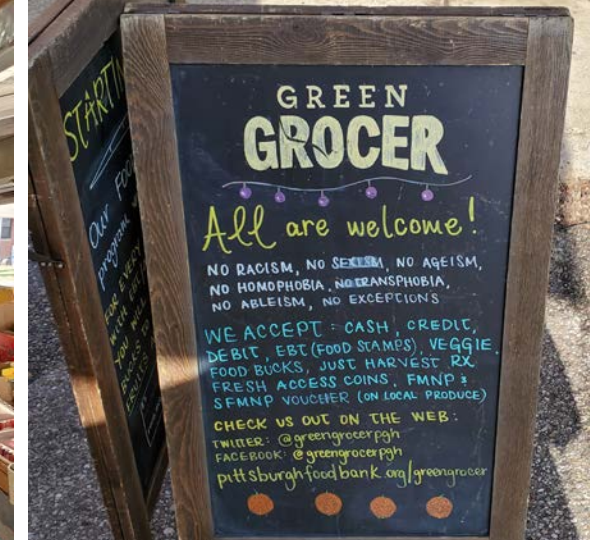 STARTIN
Our Foo
program
FOR EVERY
YOU WILL
GREEN
GROCER
All are welcome!
NO RACISM, NO SEXISM, NO AGEISM,
NO HOMOPHOBIA, NO TRANSPHOBIA,
NO ABLEISM, NO EXCEPTIONS
WE ACCEPT: CASH, CREDIT,
DEBIT, EBT (FOOD STAMPS), VEGGIE
FOOD BUCKS, JUST HARVEST RX
FRESH ACCESS COINS, FMNP &
SFMNP VOUCHER (ON LOCAL PRODUCE)
CHECK US OUT ON THE WEB:
TWITTER: @greengrocerpgh
FACEBOOK: @greengrocerpgh
pittsburghfoodbank.org/greengrocer